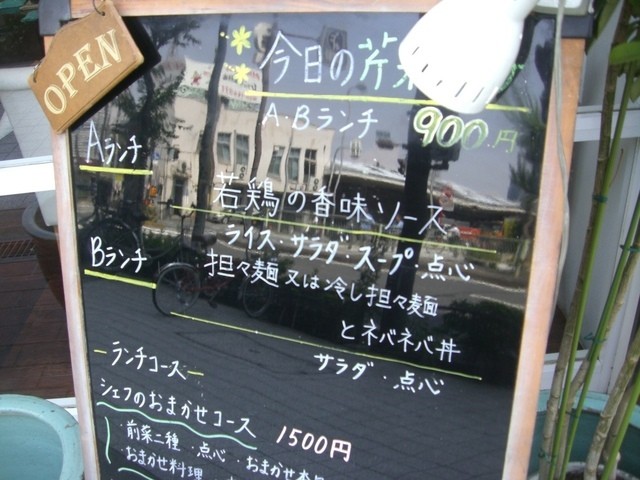 OPEN
今日の芹菜
A・Bランチ 900.円
Aランチ
若鶏の香味ソース
ライス・サラダ・スープ・点心
Bランチ
担々麺 又は冷し担々麺
とネバネバ丼
サラダ・点心
ーランチコースー
シェフのおまかせコース 1500円
・前菜二種・点心・おまかせ
おまかせ料理